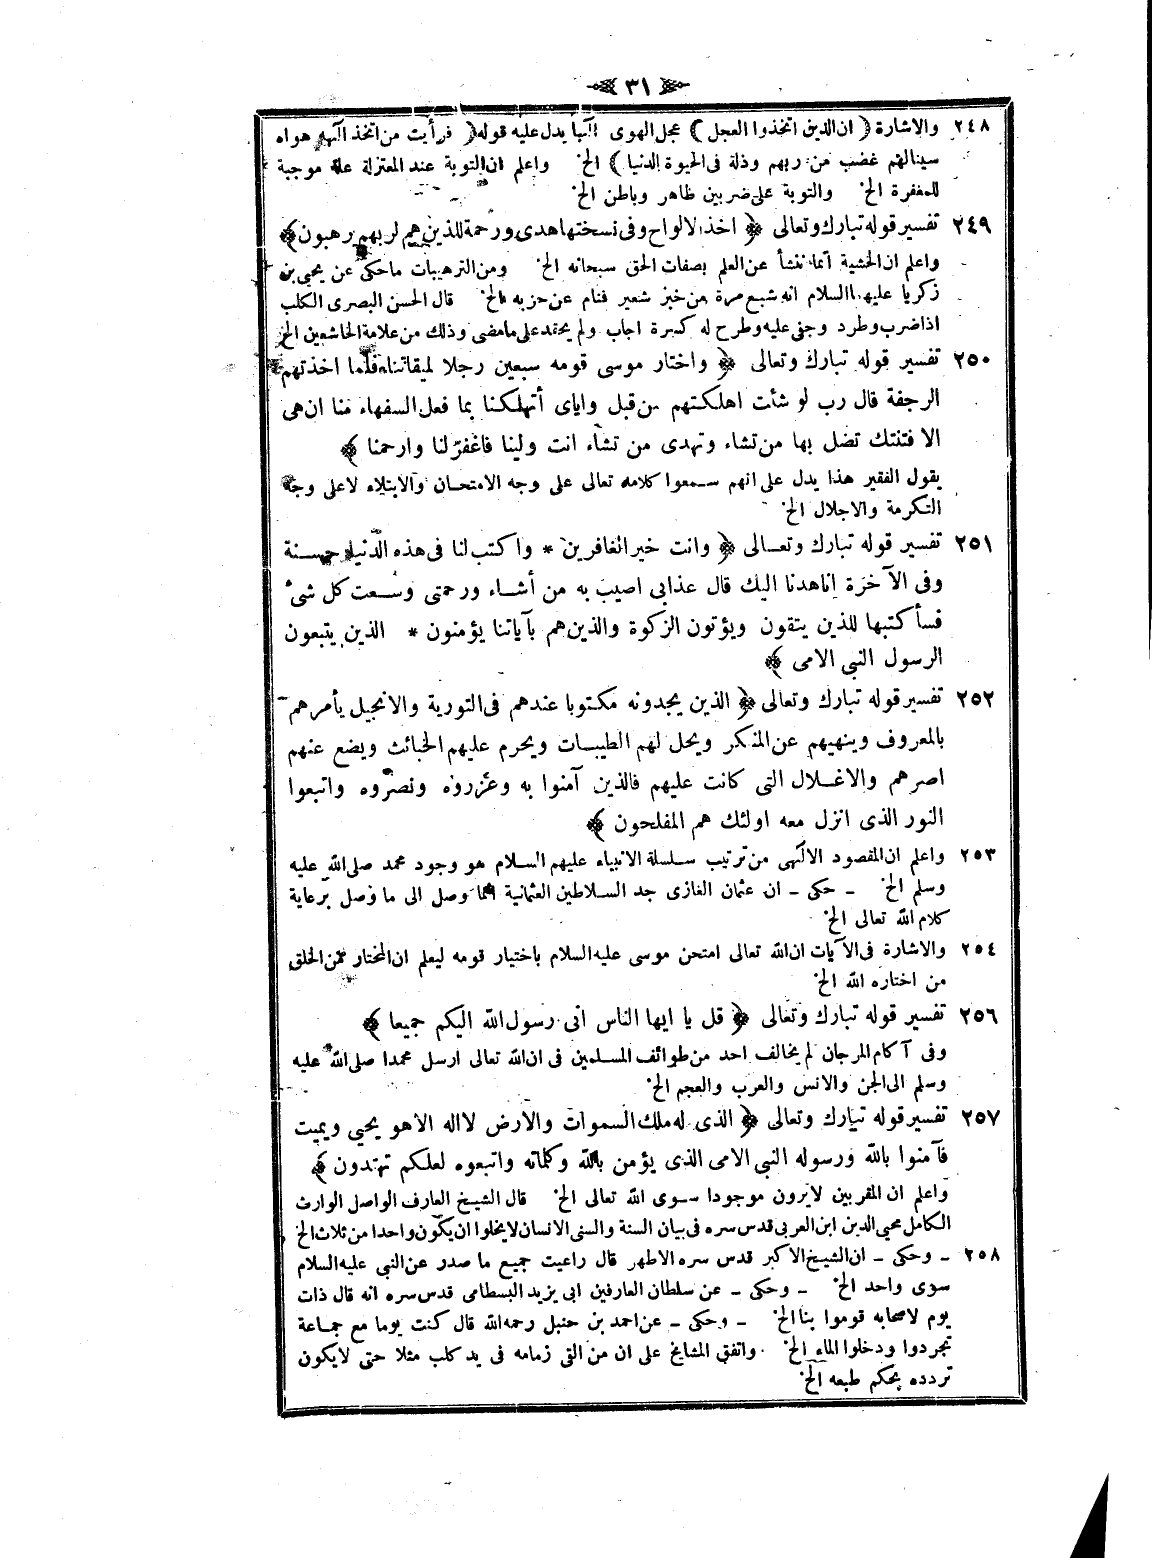 ٣١
٢٤٨ والاشارة ( ان الذين اتخذوا العجل ) عجل الهوى الٓها يدل عليه قوله ( فرأيت من اتخذ الٓهه هواه
سينالهم غضب من ربهم وذلة فى الحيوة الدنيا ) الخ واعلم ان التوبة عند المعتزلة علة موجبة
للمغفرة الخ والتوبة على ضربين ظاهر وباطن الخ
٢٤٩ تفسير قوله تبارك وتعالى ﴿ اخذ الالواح وفى نسختها هدى ورحمة للذين هم لربهم يرهبون ﴾
واعلم ان الخشية انما تنشأ عن العلم بصفات الحق سبحانه الخ ومن الترهيبات ما حكى عن يحيى بن
زكريا عليهما السلام انه شبع مرة من خبز شعير فنام عن حزبه الخ قال الحسن البصرى الكلب
اذا ضرب وطرد وجفى عليه وطرح له كسرة اجاب ولم يحقد على ما مضى وذلك من علامة الخاشعين الخ
٢٥٠ تفسير قوله تبارك وتعالى ﴿ واختار موسى قومه سبعين رجلا لميقاتنا فلما اخذتهم
الرجفة قال رب لو شئت اهلكتهم من قبل واياى أتهلكنا بما فعل السفهاء منا ان هى
الا فتنتك تضل بها من تشاء وتهدى من تشاء انت ولينا فاغفر لنا وارحمنا ﴾
يقول الفقير هذا يدل على انهم سمعوا كلامه تعالى على وجه الامتحان والابتلاء لاعلى وجه
التكرمة والاجلال الخ
٢٥١ تفسير قوله تبارك وتعالى ﴿ وانت خير الغافرين * واكتب لنا فى هذه الدنيا حسنة
وفى الآخرة انا هدنا اليك قال عذابى اصيب به من أشاء ورحمتى وسعت كل شئ
فسأكتبها للذين يتقون ويؤتون الزكوة والذين هم بآياتنا يؤمنون * الذين يتبعون
الرسول النبى الامى ﴾
٢٥٢ تفسير قوله تبارك وتعالى ﴿ الذين يجدونه مكتوبا عندهم فى التورية والانجيل يأمرهم
بالمعروف وينهيهم عن المنكر ويحل لهم الطيبات ويحرم عليهم الخبائث ويضع عنهم
اصرهم والاغلال التى كانت عليهم فالذين آمنوا به وعزروه ونصروه واتبعوا
النور الذى انزل معه اولئك هم المفلحون ﴾
٢٥٣ واعلم ان المقصود الالٓهى من ترتيب سلسلة الانبياء عليهم السلام هو وجود محمد صلى الله عليه
وسلم الخ ـ حكى ـ ان عثمان الغازى جد السلاطين العثمانية انما وصل الى ما وصل برعاية
كلام الله تعالى الخ
٢٥٤ والاشارة فى الآيات ان الله تعالى امتحن موسى عليه السلام باختيار قومه ليعلم ان المختار من الخلق
من اختاره الله الخ
٢٥٦ تفسير قوله تبارك وتعالى ﴿ قل يا ايها الناس انى رسول الله اليكم جميعا ﴾
وفى آكام المرجان لم يخالف احد من طوائف المسلمين فى ان الله تعالى ارسل محمدا صلى الله عليه
وسلم الى الجن والانس والعرب والعجم الخ
٢٥٧ تفسير قوله تبارك وتعالى ﴿ الذى له ملك السموات والارض لااله الاهو يحيى ويميت
فآمنوا بالله ورسوله النبى الامى الذى يؤمن بالله وكلماته واتبعوه لعلكم تهتدون ﴾
واعلم ان المقربين لايرون موجودا سوى الله تعالى الخ قال الشيخ العارف الواصل الوارث
الكامل محيى الدين ابن العربى قدس سره فى بيان السنة والسنى الانسان لايخلوا ان يكون واحدا من ثلاث الخ
٢٥٨ ـ وحكى ـ ان الشيخ الاكبر قدس سره الاطهر قال راعيت جميع ما صدر عن النبى عليه السلام
سوى واحد الخ ـ وحكى ـ عن سلطان العارفين ابى يزيد البسطامى قدس سره انه قال ذات
يوم لاصحابه قوموا بنا الخ ـ وحكى ـ عن احمد بن حنبل رحمه الله قال كنت يوما مع جماعة
تجردوا ودخلوا الماء الخ واتفق المشايخ على ان من القى زمامه فى يد كلب مثلا حتى لايكون
تردده بحكم طبعه الخ